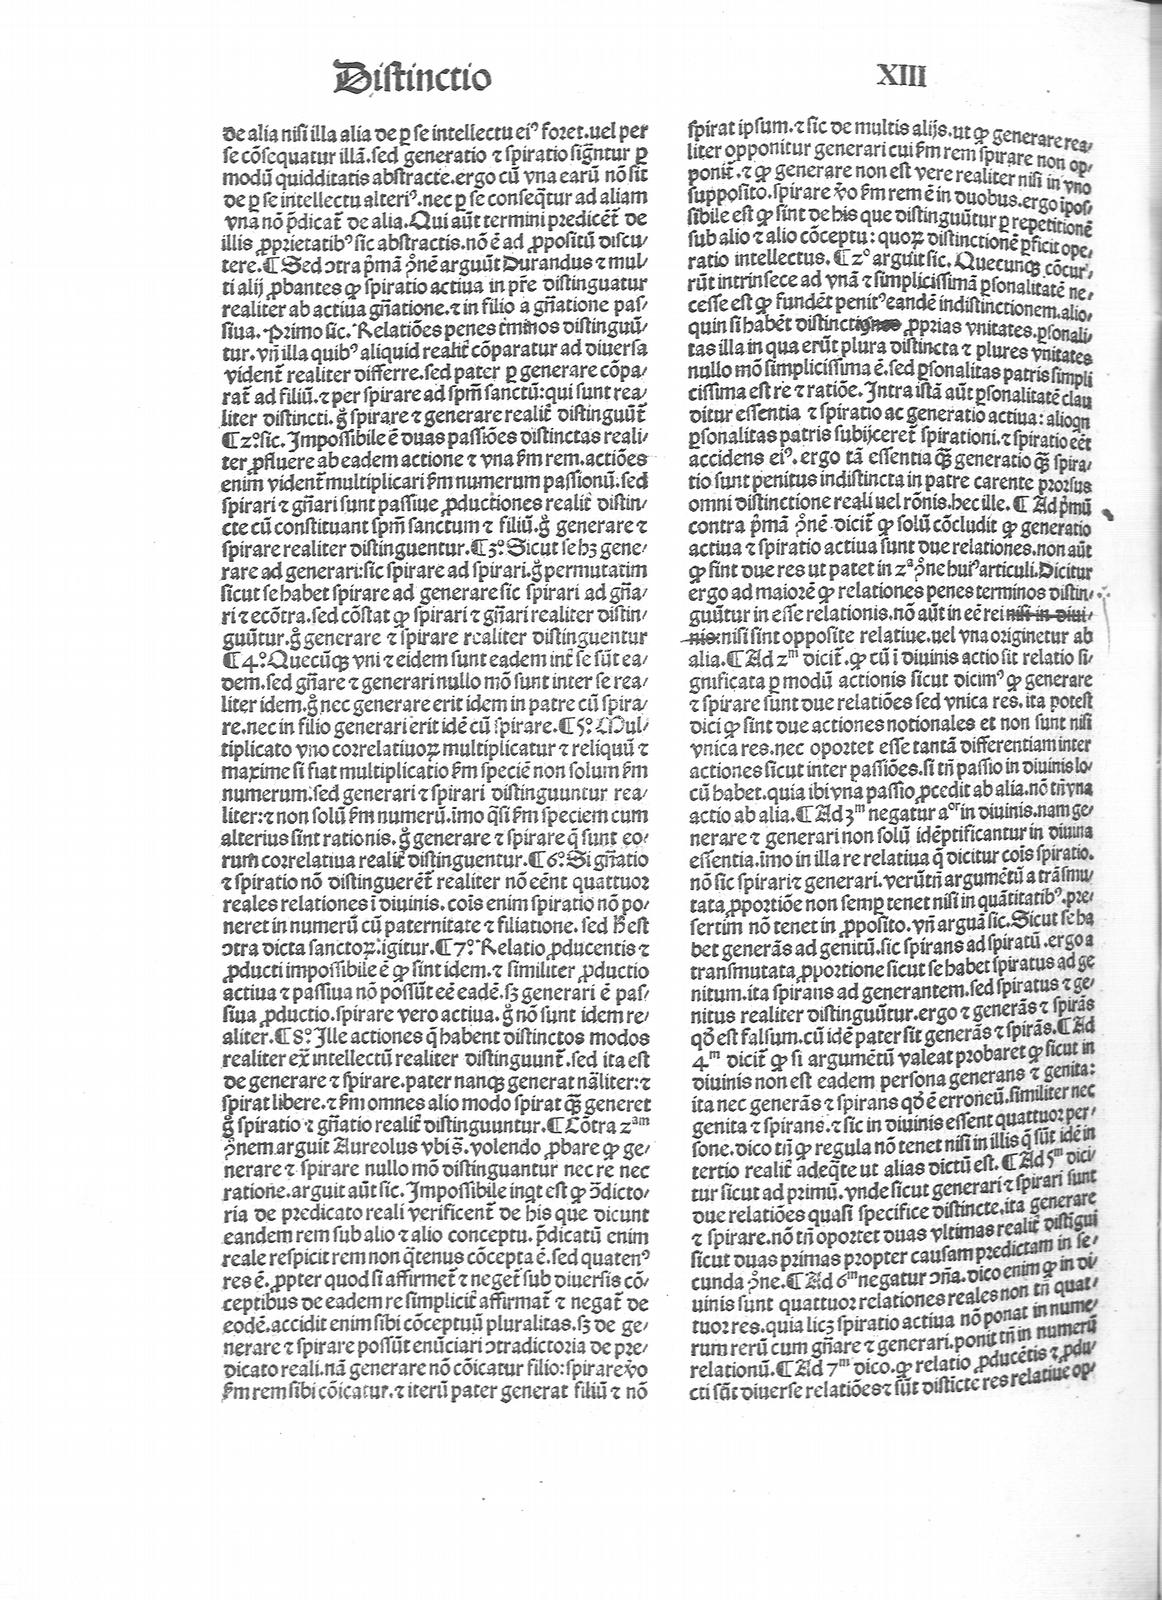 Distinctio XIII
de alia nisi illa alia de ꝑ se intellectu eiꝰ foret.uel per
se cōsequatur illā.sed generatio ⁊ spiratio sigñtur ꝑ
modū quidditatis abstracte.ergo cū vna earū nō sit
de ꝑ se intellectu alteriꝰ.nec ꝑ se conseq̄tur ad aliam
vna nō p̄dicat̄ de alia.Qui aūt termini predicēt̄ de
illis ꝓprietatibꝰ sic abstractis.nō ē ad ꝓpositū discu/
tere.¶ Sed ↄtra p̄mā ꝯ̄nē arguūt Durandus ⁊ mul/
ti alij ꝓbantes ꝙ spiratio actiua in pr̄e distinguatur
realiter ab actiua gñatione.⁊ in filio a gñatione pas/
siua. Primo sic. Relatiōes penes tm̄inos distinguū/
tur. vñ illa quibꝰ aliquid realit̄ cōparatur ad diuersa
vident̄ realiter differre.sed pater ꝑ generare cōpa/
rat̄ ad filiū.⁊ per spirare ad spm̄ sanctū:qui sunt rea/
liter distincti. g̊ spirare ⁊ generare realit̄ distinguūt̄
¶ 2º.sic. Impossibile ē duas passiōes distinctas reali/
ter ꝓfluere ab eadem actione ⁊ vna f̄m rem.actiōes
enim vident̄ multiplicari f̄m numerum passionū.sed
spirari ⁊ gñari sunt passiue ꝓductiones realit̄ distin/
cte cū constituant spm̄ sanctum ⁊ filiū.g̊ generare ⁊
spirare realiter distinguentur.¶ 3º. Sicut se hꝫ gene/
rare ad generari:sic spirare ad spirari.g̊ permutatim
sicut se habet spirare ad generare sic spirari ad gña/
ri ⁊ ecōtra.sed cōstat ꝙ spirari ⁊ gñari realiter distin/
guūtur.g̊ generare ⁊ spirare realiter distinguentur
¶ 4º. Quecūqꝫ vni ⁊ eidem sunt eadem int̄ se sūt ea/
dem.sed gñare ⁊ generari nullo mō sunt inter se rea/
liter idem.g̊ nec generare erit idem in patre cū spira/
re.nec in filio generari erit idē cū spirare.¶ 5º. Mul/
tiplicato vno correlatiuoꝝ multiplicatur ⁊ reliquū ⁊
maxime si fiat multiplicatio f̄m speciē non solum f̄m
numerum:sed generari ⁊ spirari distinguuntur rea/
liter:⁊ non solū f̄m numerū.imo q̄si f̄m speciem cum
alterius sint rationis. g̊ generare ⁊ spirare q̄ sunt eo/
rum correlatiua realit̄ distinguentur.¶ 6º. Si gñatio
⁊ spiratio nō distinguerēt̄ realiter nō eēnt quattuor
reales relationes ī diuinis. cōis enim spiratio nō po/
neret in numerū cū paternitate ⁊ filiatione. sed hͦ est
ↄtra dicta sanctoꝝ.igitur.¶ 7º. Relatio ꝓducentis ⁊
ꝓducti impossibile ē ꝙ sint idem.⁊ similiter ꝓductio
actiua ⁊ passiua nō possūt eē eadē.sꝫ generari ē pas/
siua ꝓductio.spirare vero actiua.g̊ nō sunt idem re/
aliter.¶ 8º. Ille actiones q̄ habent distinctos modos
realiter ex̄ intellectū realiter distinguunt̄.sed ita est
de generare ⁊ spirare.pater nanqꝫ generat nāliter:⁊
spirat libere.⁊ f̄m omnes alio modo spirat qꝫ̄ generet
g̊ spiratio ⁊ gñatio realit̄ distinguuntur.¶ Cōtra 2ᵃᵐ
ꝯ̄nem arguit Aureolus vbi s̄. volendo ꝓbare ꝙ ge/
nerare ⁊ spirare nullo mō distinguantur nec re nec
ratione.arguit aūt sic. Impossibile inqt est ꝙ ↄ̄dicto/
ria de predicato reali verificent̄ de his que dicunt
eandem rem sub alio ⁊ alio conceptu. p̄dicatū enim
reale respicit rem non q̄tenus cōcepta ē.sed quatenꝰ
res ē. ꝓpter quod si affirmet̄ ⁊ neget̄ sub diuersis cō/
ceptibus de eadem re simplicit̄ affirmat̄ ⁊ negat̄ de
eodē.accidit enim sibi cōceptuū pluralitas.sꝫ de ge/
nerare ⁊ spirare possūt enūciari ↄtradictoria de pre/
dicato reali.nā generare nō cōicatur filio:spirare v̊o
f̄m rem sibi cōicatur.⁊ iterū pater generat filiū ⁊ nō
spirat ipsum.⁊ sic de multis alijs.ut ꝙ generare rea/
liter opponitur generari cui f̄m rem spirare non op/
ponit̄.⁊ ꝙ generare non est vere realiter nisi in vno
supposito.spirare v̊o f̄m rem ē in duobus.ergo ipos/
sibile est ꝙ sint de his que distinguūtur ꝑ repetitionē
sub alio ⁊ alio cōceptu: quoꝝ distinctionē ꝑficit ope/
ratio intellectus. ¶ 2º arguit sic. Quecunqꝫ cōcur/
rūt intrinsece ad vnā ⁊ simplicissimā ꝑsonalitatē ne/
cesse est ꝙ fundēt penitꝰ eandē indistinctionem.alio/
quin si habēt distinct ꝓprias vnitates.ꝑsonali/
tas illa in qua erūt plura distincta ⁊ plures vnitates
nullo mō simplicissima ē.sed ꝑsonalitas patris simpli
cissima est re ⁊ ratiōe. Intra istā aūt ꝑsonalitatē clau
ditur essentia ⁊ spiratio ac generatio actiua: alioqn
ꝑsonalitas patris subijceret̄ spirationi.⁊ spiratio eēt
accidens eiꝰ. ergo tā essentia qꝫ̄ generatio qꝫ̄ spira/
tio sunt penitus indistincta in patre carente prorsus
omni distinctione reali uel rōnis.hec ille. ¶ Ad p̄mū
contra p̄mā ꝯ̄nē dicit̄ ꝙ solū cōcludit ꝙ generatio
actiua ⁊ spiratio actiua sunt due relationes.non aūt
ꝙ sint due res ut patet in 2ᵃ ꝯ̄ne huiꝰ articuli.Dicitur
ergo ad maiorē ꝙ relationes penes terminos distin/
guūtur in esse relationis.nō aūt in eē rei nisi in diui/
nis:nisi sint opposite relatiue.uel vna originetur ab
alia.¶ Ad 2ᵐ dicit̄.ꝙ cū ī diuinis actio sit relatio si/
gnificata ꝑ modū actionis sicut dicimꝰ ꝙ generare
⁊ spirare sunt due relatiōes sed vnica res. ita potest
dici ꝙ sint due actiones notionales et non sunt nisi
vnica res.nec oportet esse tantā differentiam inter
actiones sicut inter passiōes.si tñ passio in diuinis lo/
cū habet.quia ibi vna passio ꝓcedit ab alia.nō tñ vna
actio ab alia.¶ Ad 3ᵐ negatur aᵒʳ in diuinis.nam ge/
nerare ⁊ generari non solū idēptificantur in diuina
essentia.imo in illa re relatiua q̄ dicitur cōis spiratio.
nō sic spirari ⁊ generari.verūtñ argumētū a trāsmu/
tata ꝓportiōe non semꝑ tenet nisi in quātitatibꝰ.pre/
sertim nō tenet in ꝓposito. vñ arguā sic. Sicut se ha
bet generās ad genitū.sic spirans ad spiratū .ergo a
transmutata ꝓportione sicut se habet spiratus ad ge
nitum.ita spirans ad generantem.sed spiratus ⁊ ge/
nitus realiter distinguūtur.ergo ⁊ generās ⁊ spirās
qđ est falsum.cū idē pater sit generās ⁊ spirās.¶ Ad
4ᵐ dicit̄ ꝙ si argumētū valeat probaret ꝙ sicut in
diuinis non est eadem persona generans ⁊ genita:
ita nec generās ⁊ spirans qđ ē erroneū.similiter nec
genita ⁊ spirans.⁊ sic in diuinis essent quattuor per/
sone.dico tñ ꝙ regula nō tenet nisi in illis q̄ sūt idē in
tertio realit̄ adeq̄te ut alias dictū est. ¶ Ad 5ᵐ dici/
tur sicut ad primū. vnde sicut generari ⁊ spirari sunt
due relatiōes quasi specifice distincte.ita generare
⁊ spirare.nō tñ oportet duas vltimas realit̄ distigui
sicut duas primas propter causam predictam in se/
cunda ꝯ̄ne. ¶ Ad 6ᵐ negatur ↄñā. dico enim ꝙ in di
uinis sunt quattuor relationes reales non tñ quat/
tuor res.quia licꝫ spiratio actiua nō ponat in nume/
rum rerū cum gñare ⁊ generari.ponit tñ in numerū
relationū.¶ Ad 7ᵐ dico.ꝙ relatio ꝓducētis ⁊ ꝓdu/
cti sūt diuerse relatiōes ⁊ sūt disticte res relatiue op/